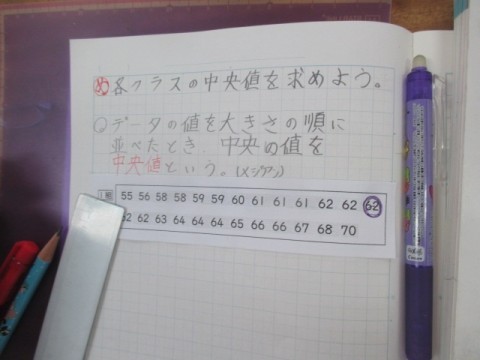 め 各クラスの中央値を求めよう。
データの値を大きさの順に
並べたとき、中央の値を
中央値という。(メジアン)
1組 55 56 58 58 59 59 60 61 61 61 62 62 62
62 63 64 64 64 65 66 66 67 68 70